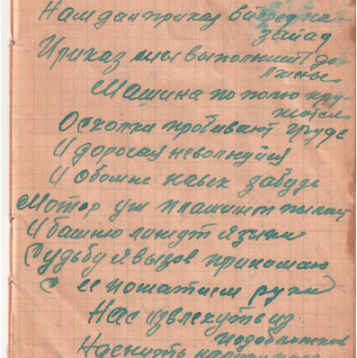 Нам дан приказ вперед на
запад
Приказ мы выполнить до
лжны
Машина по полю кру
жится
Осколки пробивают грудь
И дорогая неволнуйся
И обо мне навек забудь
Мотор уж пламинем пылает
И башню лижут языки
Судьбу я вызов принимаю
С ее пожатием руки
Нас извлекут из
под обломков